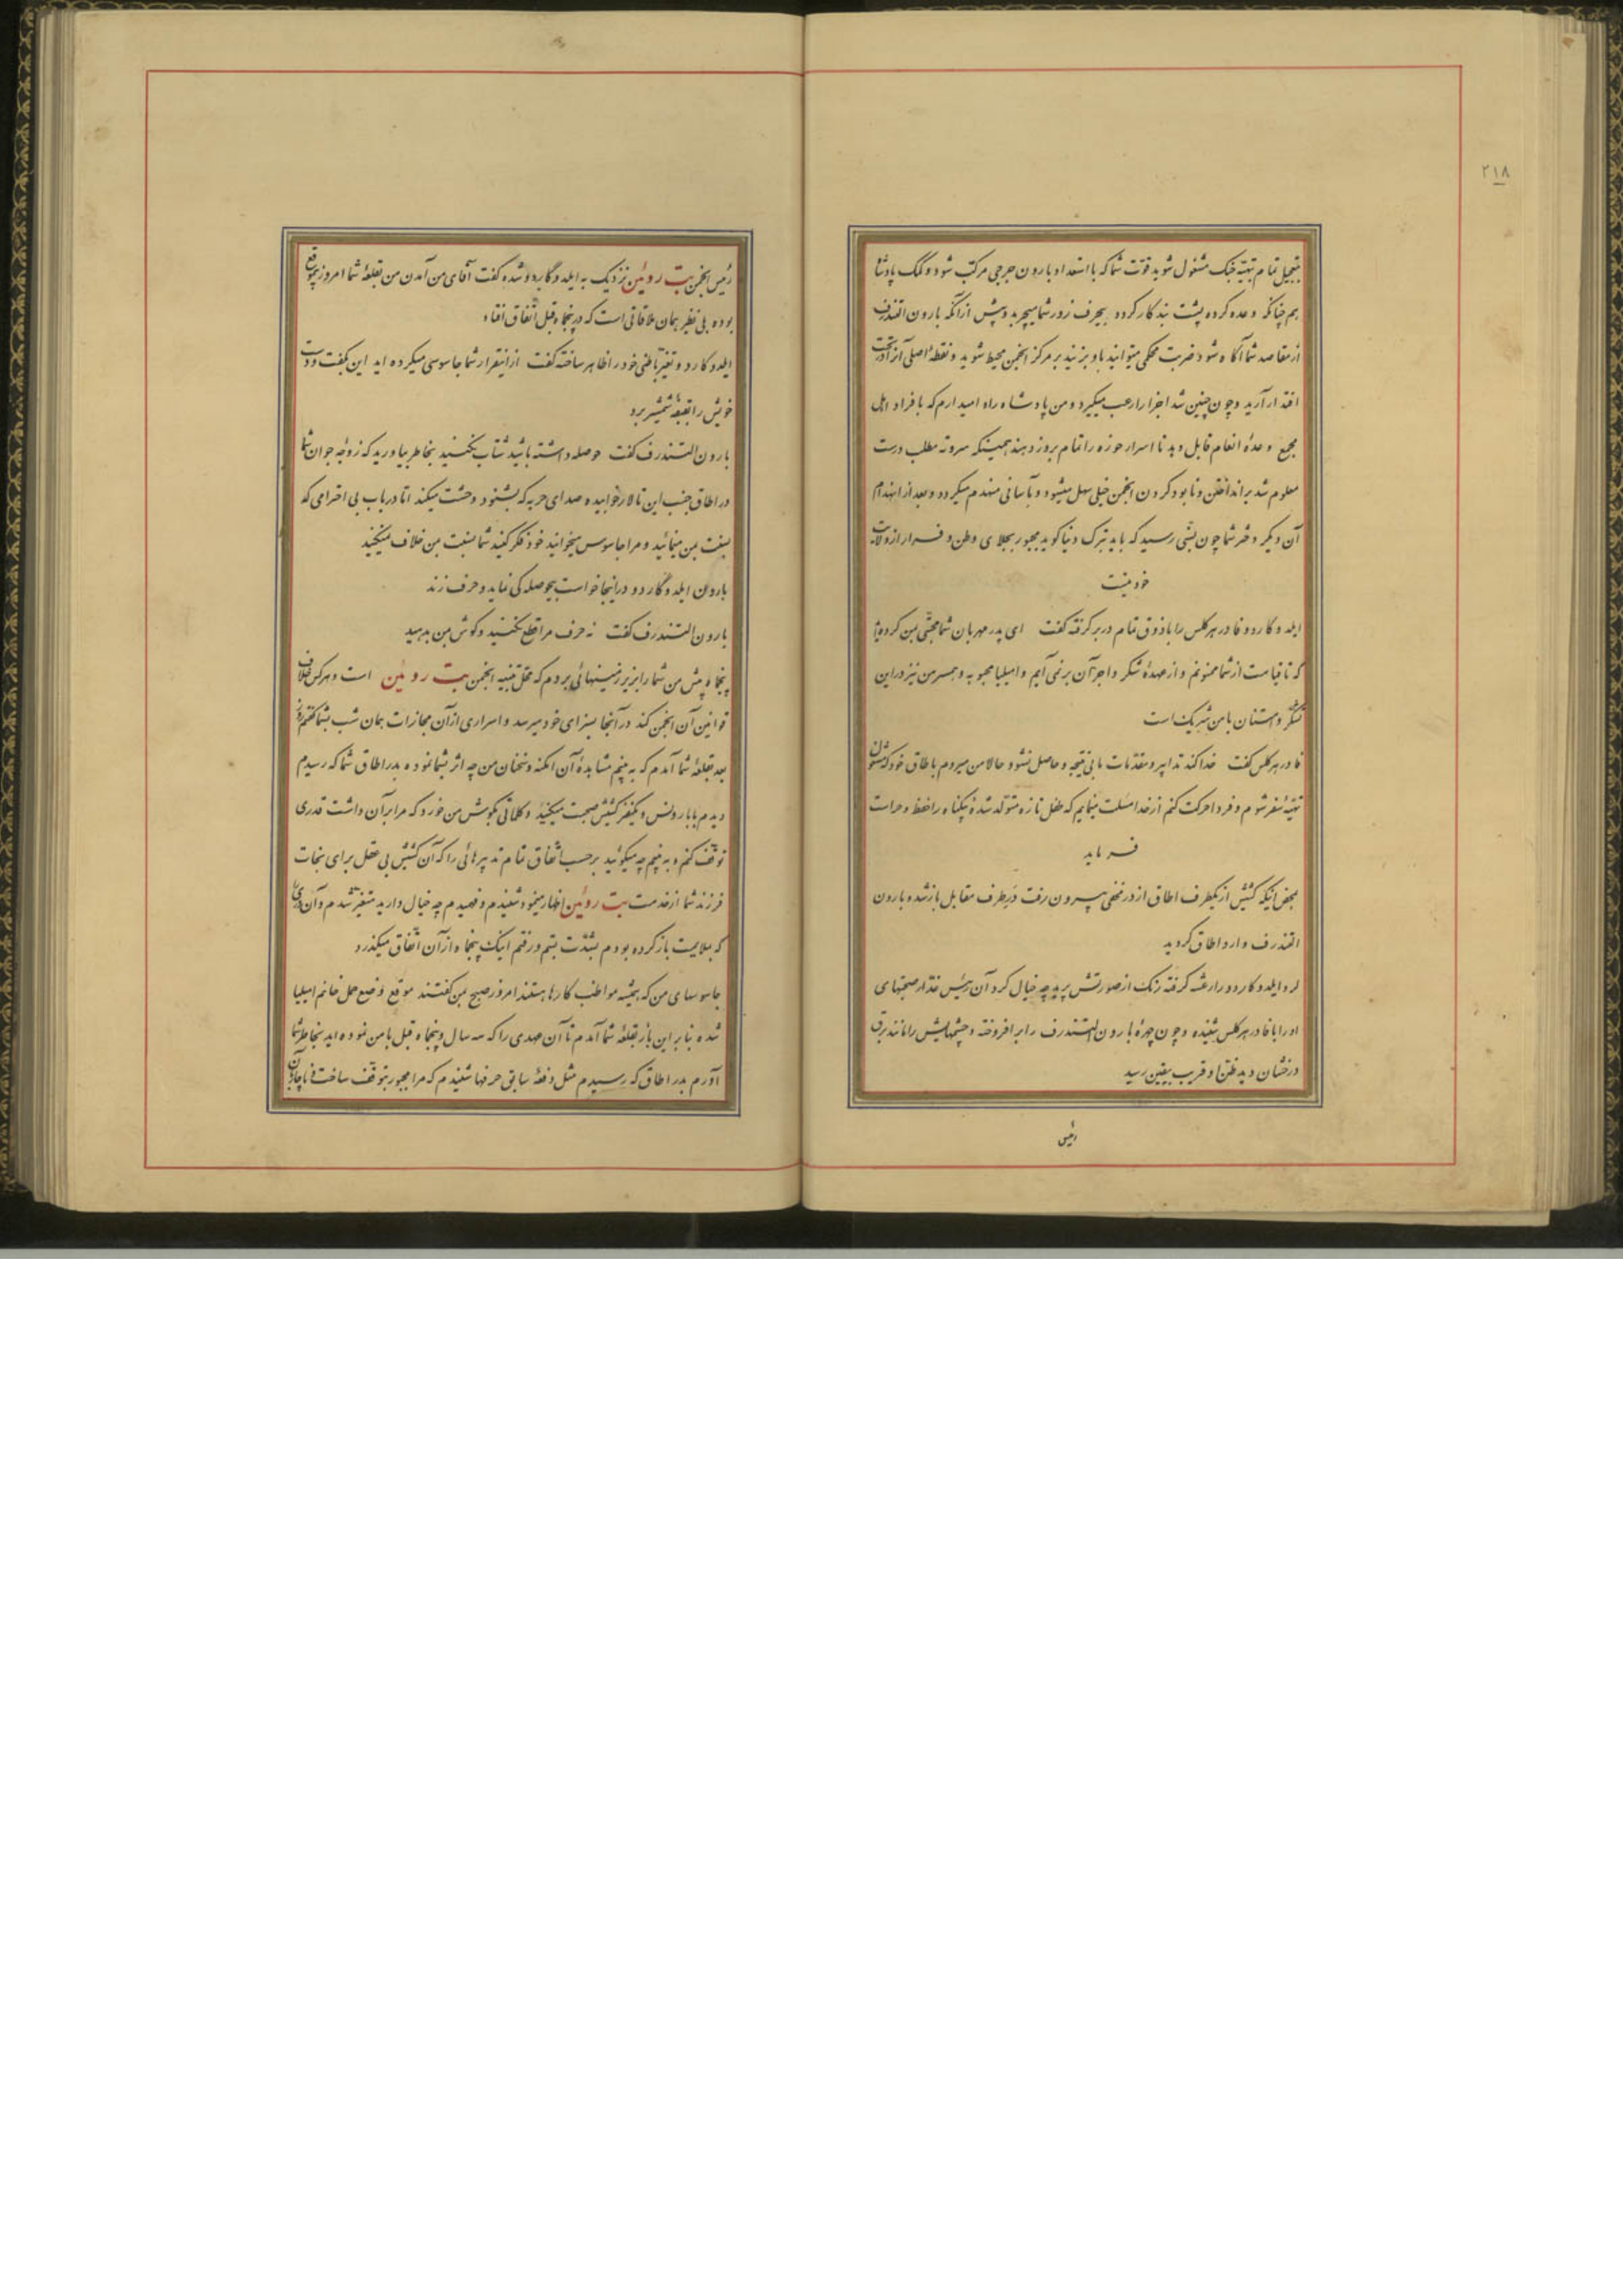 ۲۱۸
بتعجیل تمام تهیهٔ جنگ مشغول شوید قوت شما که با استعداد بارون جرجی مرکب شود و کمک پادشاه
هم چنانکه وعده کرده پشت بند کار گردد بحرف زور شما میچربد و پیش از آنکه بارون التندرف
از مقاصد شما آگاه شود ضربت محکمی میتوانید باو بزنید بر مرکز انجمن محیط شوید و نقطهٔ اصلی آنرا در تحت
اقتدار آرید و چون چنین شد اجزا را رعب میگیرد و من پادشاه را امیدوارم که بافراد اهل
مجمع وعدهٔ انعام قابل دهد تا اسرار حوزه را تمام بروز دهند همینکه سررشته مطلب درست
معلوم شد برانداختن و نابود کردن انجمن خیلی سهل میشود و بآسانی منهدم میگردد و بعد از انهدام
آن دیگر دختر شما چون بسنی رسید که باید ترک دنیا گوید مجبور بجلای وطن و فرار از ولایت
خود نیست
ایلدوکاردو فادر هرکلس را با ذوق تمام در بر گرفته گفت ای پدر مهربان شما محبتی بمن کرده‌اید
که تا قیامت از شما ممنونم و از عهدهٔ شکر و اجر آن برنمی‌آیم و امیلیا محبوبه و همسر من نیز در این
تشکر و امتنان با من شریک است
فادر هرکلس گفت خدا کند تدابیر و مقدمات ما بی نتیجه و حاصل نشود حالا من میروم باطاق خود که مشغول
تهیهٔ سفر شوم و فردا حرکت کنم از خدا مسئلت مینمایم که طفل تازه متولد شدهٔ بیگناه را حفظ و حراست
فرماید
بمحض اینکه کشیش از یکطرف اطاق از در مخفی بیرون رفت در طرف مقابل باز شده بارون
التندرف وارد اطاق گردید
ایلدوکاردو را رعشه گرفته رنگ از صورتش پرید چه خیال کرد آن رئیس غدار صحبتهای
او را با فادر هرکلس شنیده و چون چهرهٔ بارون التندرف را برافروخته و چشمهایش را مانند برق
درخشان دید ظن او قریب بیقین رسید
رئیس
رئیس انجمن بت روئین نزدیک به ایلدوگاردو شده گفت آقای من آمدن من بقلعهٔ شما امروز بموقع
بوده بی نظیر همان ملاقاتی است که در پنجاه قبل اتفاق افتاد
ایلدوکاردو تغیر باطنی خود را ظاهر ساخته گفت از اینقرار شما جاسوسی میکرده اید این بگفت و دست
خویش را بقبضهٔ شمشیر برد
بارون التندرف گفت حوصله داشته باشید شتاب نکنید بخاطر بیاورید که زوجه جوان شما
در اطاق جنب این تالار خوابیده صدای حربه که بشنود وحشت میکند اما در باب بی احترامی که
نسبت بمن مینمائید و مرا جاسوس میخوانید خود فکر کنید شما نسبت من خلاف میکنید
بارون ایلدوگاردو در اینجا خواست بیحوصله‌گی نماید و حرف زند
بارون التندرف گفت نه حرف مرا قطع نکنید و گوش بمن بدهید
پنجاه پیش من شما را بزیر زمینهائی بردم که محل تنبیه انجمن بت روئین است و هر کس خلاف
قوانین آن انجمن کند در آنجا بسزای خود میرسد و اسراری از آن مجازات همان شب بشما گفتم روز
بعد بقلعهٔ شما آمدم که به بینم مشاهدهٔ آن امکنه و سخنان من چه اثر بشما نموده بدر اطاق شما که رسیدم
دیدم با بارونس و یکنفر کشیش صحبت میکنید و کلماتی بگوش من خورد که مرا بر آن داشت قدری
توقف کنم و به بینم چه میگوئید برحسب اتفاق تمام تدبیرهائی را که آن کشیش بی عقل برای نجات
فرزند شما از خدمت بت روئین اظهار مینمود شنیدم و فهمیدم چه خیال دارید متغیر شدم و آن دری را
که بملایمت باز کرده بودم بشدت بستم و رفتم اینک پنجاه از آن اتفاق میگذرد
جاسوسهای من که همیشه مواظب کارها هستند امروز صبح بمن گفتند موقع وضع حمل خانم امیلیا
شده بنابر این باز بقلعهٔ شما آمدم تا آن عهدی را که سه سال و پنجاه قبل با من نموده اید بخاطر شما
آورم بدر اطاق که رسیدم مثل دفعهٔ سابق حرفها شنیدم که مرا مجبور بتوقف ساخت